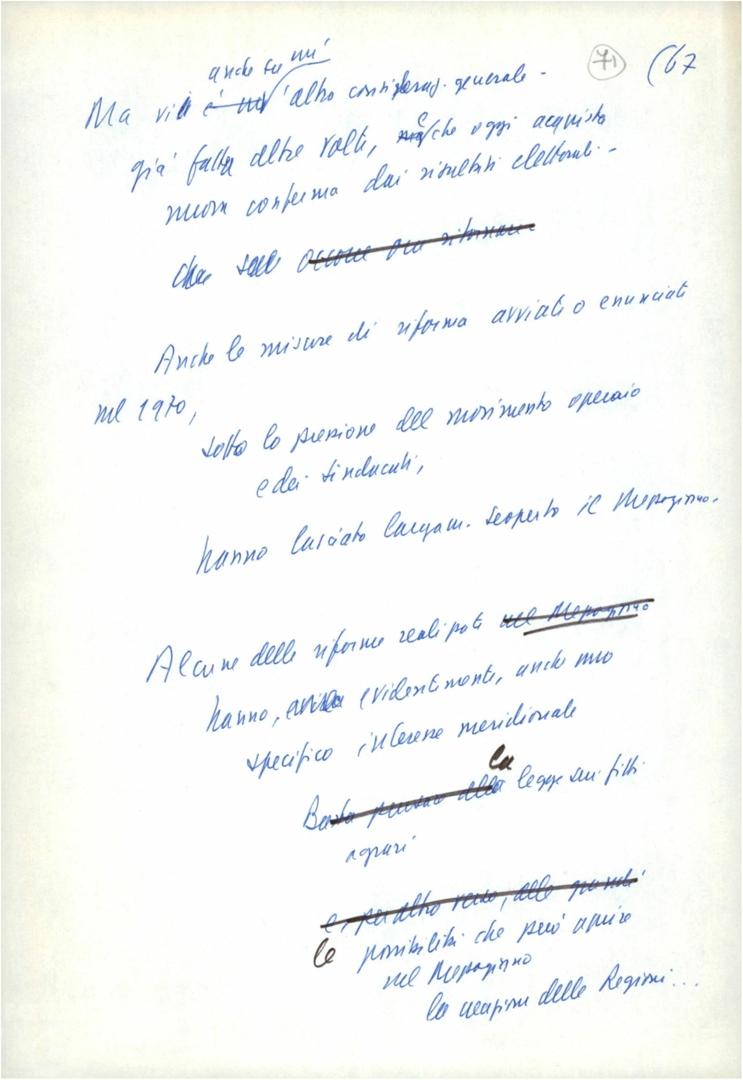 71 (67
anche su un'
Ma vi è un' altra consideraz. generale -
già fatta altre volte, e che oggi acquista
nuova conferma dai risultati elettorali -
che sale occorre ritornare
Anche le misure di riforma avviate o enunciate
nel 1970,
sotto la pressione del movimento operaio
e dei sindacati,
hanno lasciato largam. scoperto il Mezzogiorno.
Alcune delle riforme realizzate nel Mezzogiorno
hanno, evidentemente, anche uno
specifico interesse meridionale
la
Basta pensare alla legge sui fitti
agrari
e, per altro verso, alle grandi
le possibilità che può aprire
nel Mezzogiorno
la creazione delle Regioni...